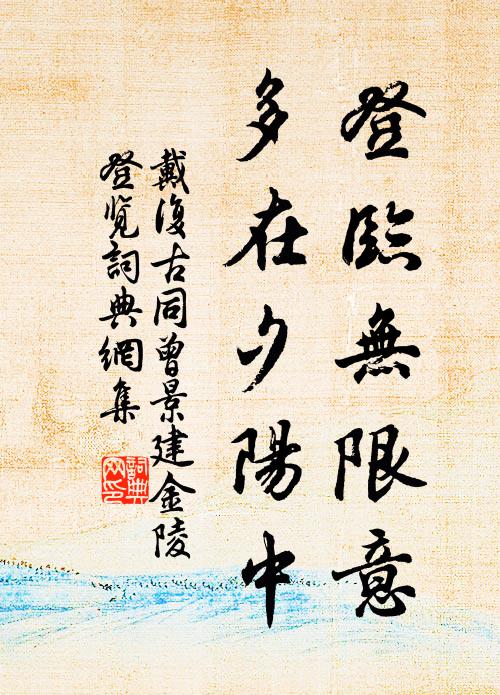 登臨無限意
多在夕陽中
戴復古同曾景建金陵
登覽詞典網集
詞典
网印